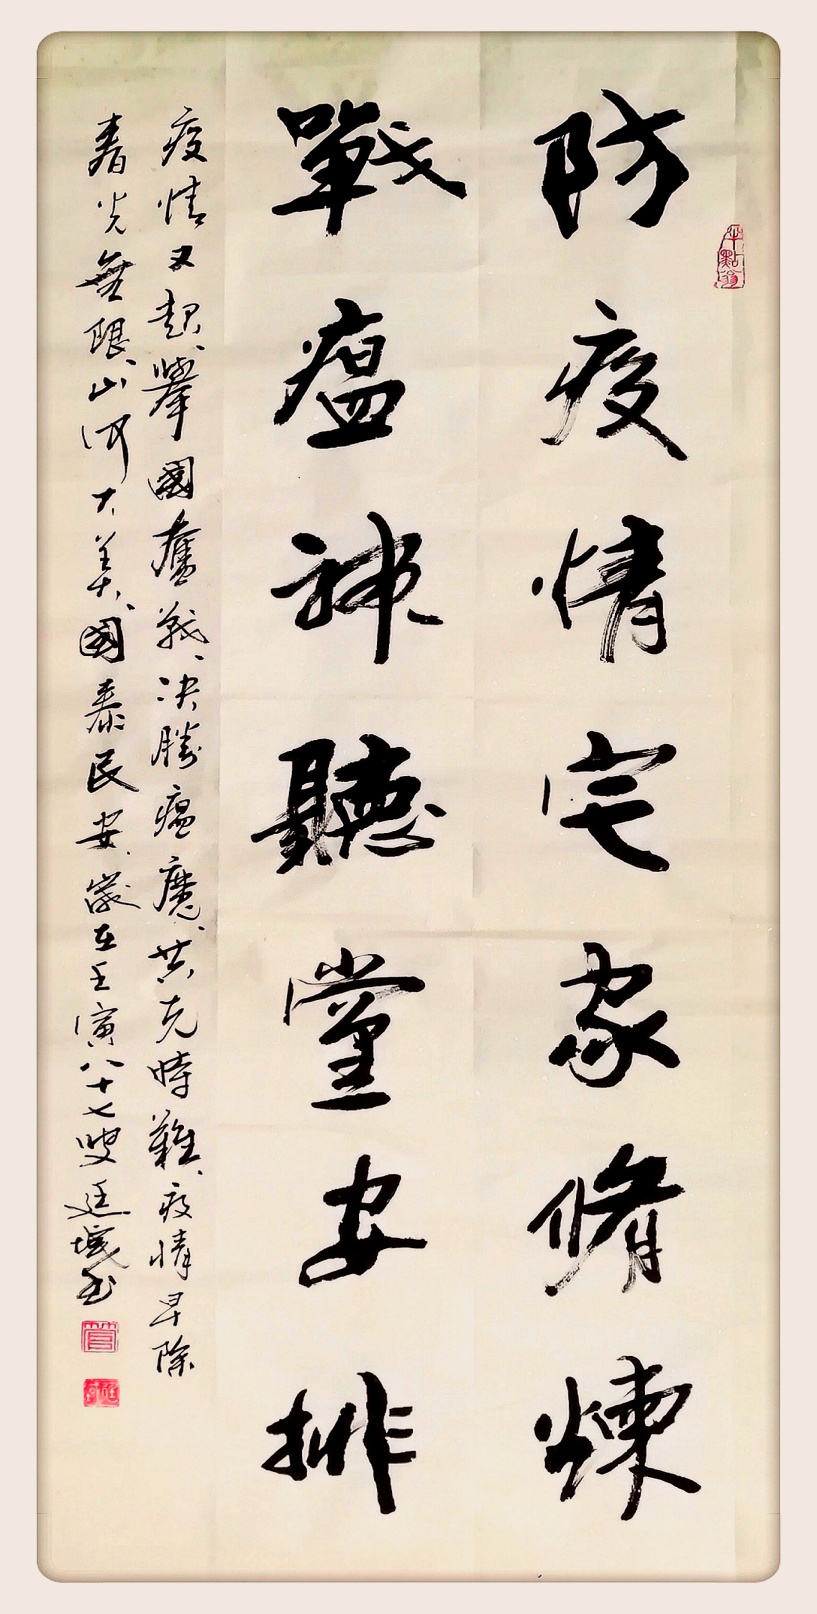 防疫情宅家脩煉
戰瘟神聽黨安排
疫情又起、舉國奮戰、決勝瘟魔、共克時難、疫情早除
春光無限、山河大美、國泰民安、歲在壬寅八十七叟廷城書